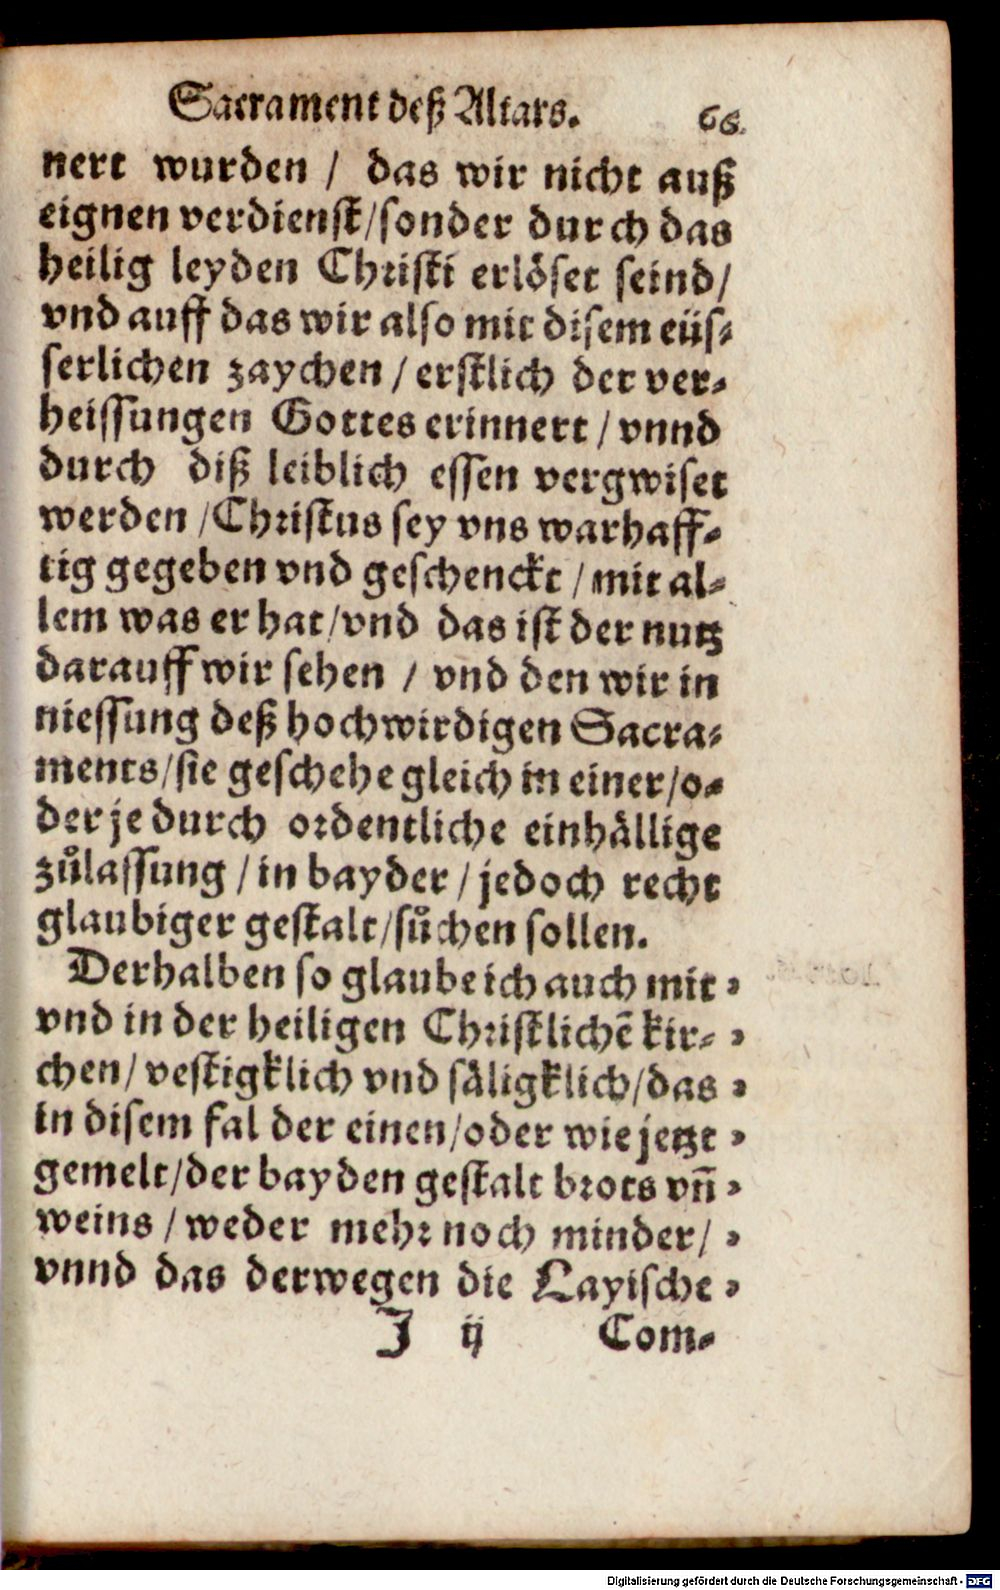 Sacrament deß Altars. 66.
nert wurden / das wir nicht auß
eignen verdienst/sonder durch das
heilig leyden Christi erlöset seind/
vnd auff das wir also mit disem eüs-
serlichen zaychen / erstlich der ver-
heissungen Gottes erinnert / vnnd
durch diß leiblich essen vergwiset
werden /Christus sey vns warhaff-
tig gegeben vnd geschenckt / mit al-
lem was er hat/vnd das ist der nutz
darauff wir sehen / vnd den wir in
niessung deß hochwirdigen Sacra-
ments/sie geschehe gleich in einer/o-
der je durch ordentliche einhällige
zůlassung / in bayder / jedoch recht
glaubiger gestalt/sůchen sollen.
Derhalben so glaube ich auch mit
vnd in der heiligen Christlichē kir-
chen/ vestigklich vnd säligklich/das
in disem fal der einen/oder wie jetzt
gemelt/der bayden gestalt brots vñ
weins / weder mehr noch minder/
vnnd das derwegen die Layische
J ij Com-
Digitalisierung gefördert durch die Deutsche Forschungsgemeinschaft - DFG